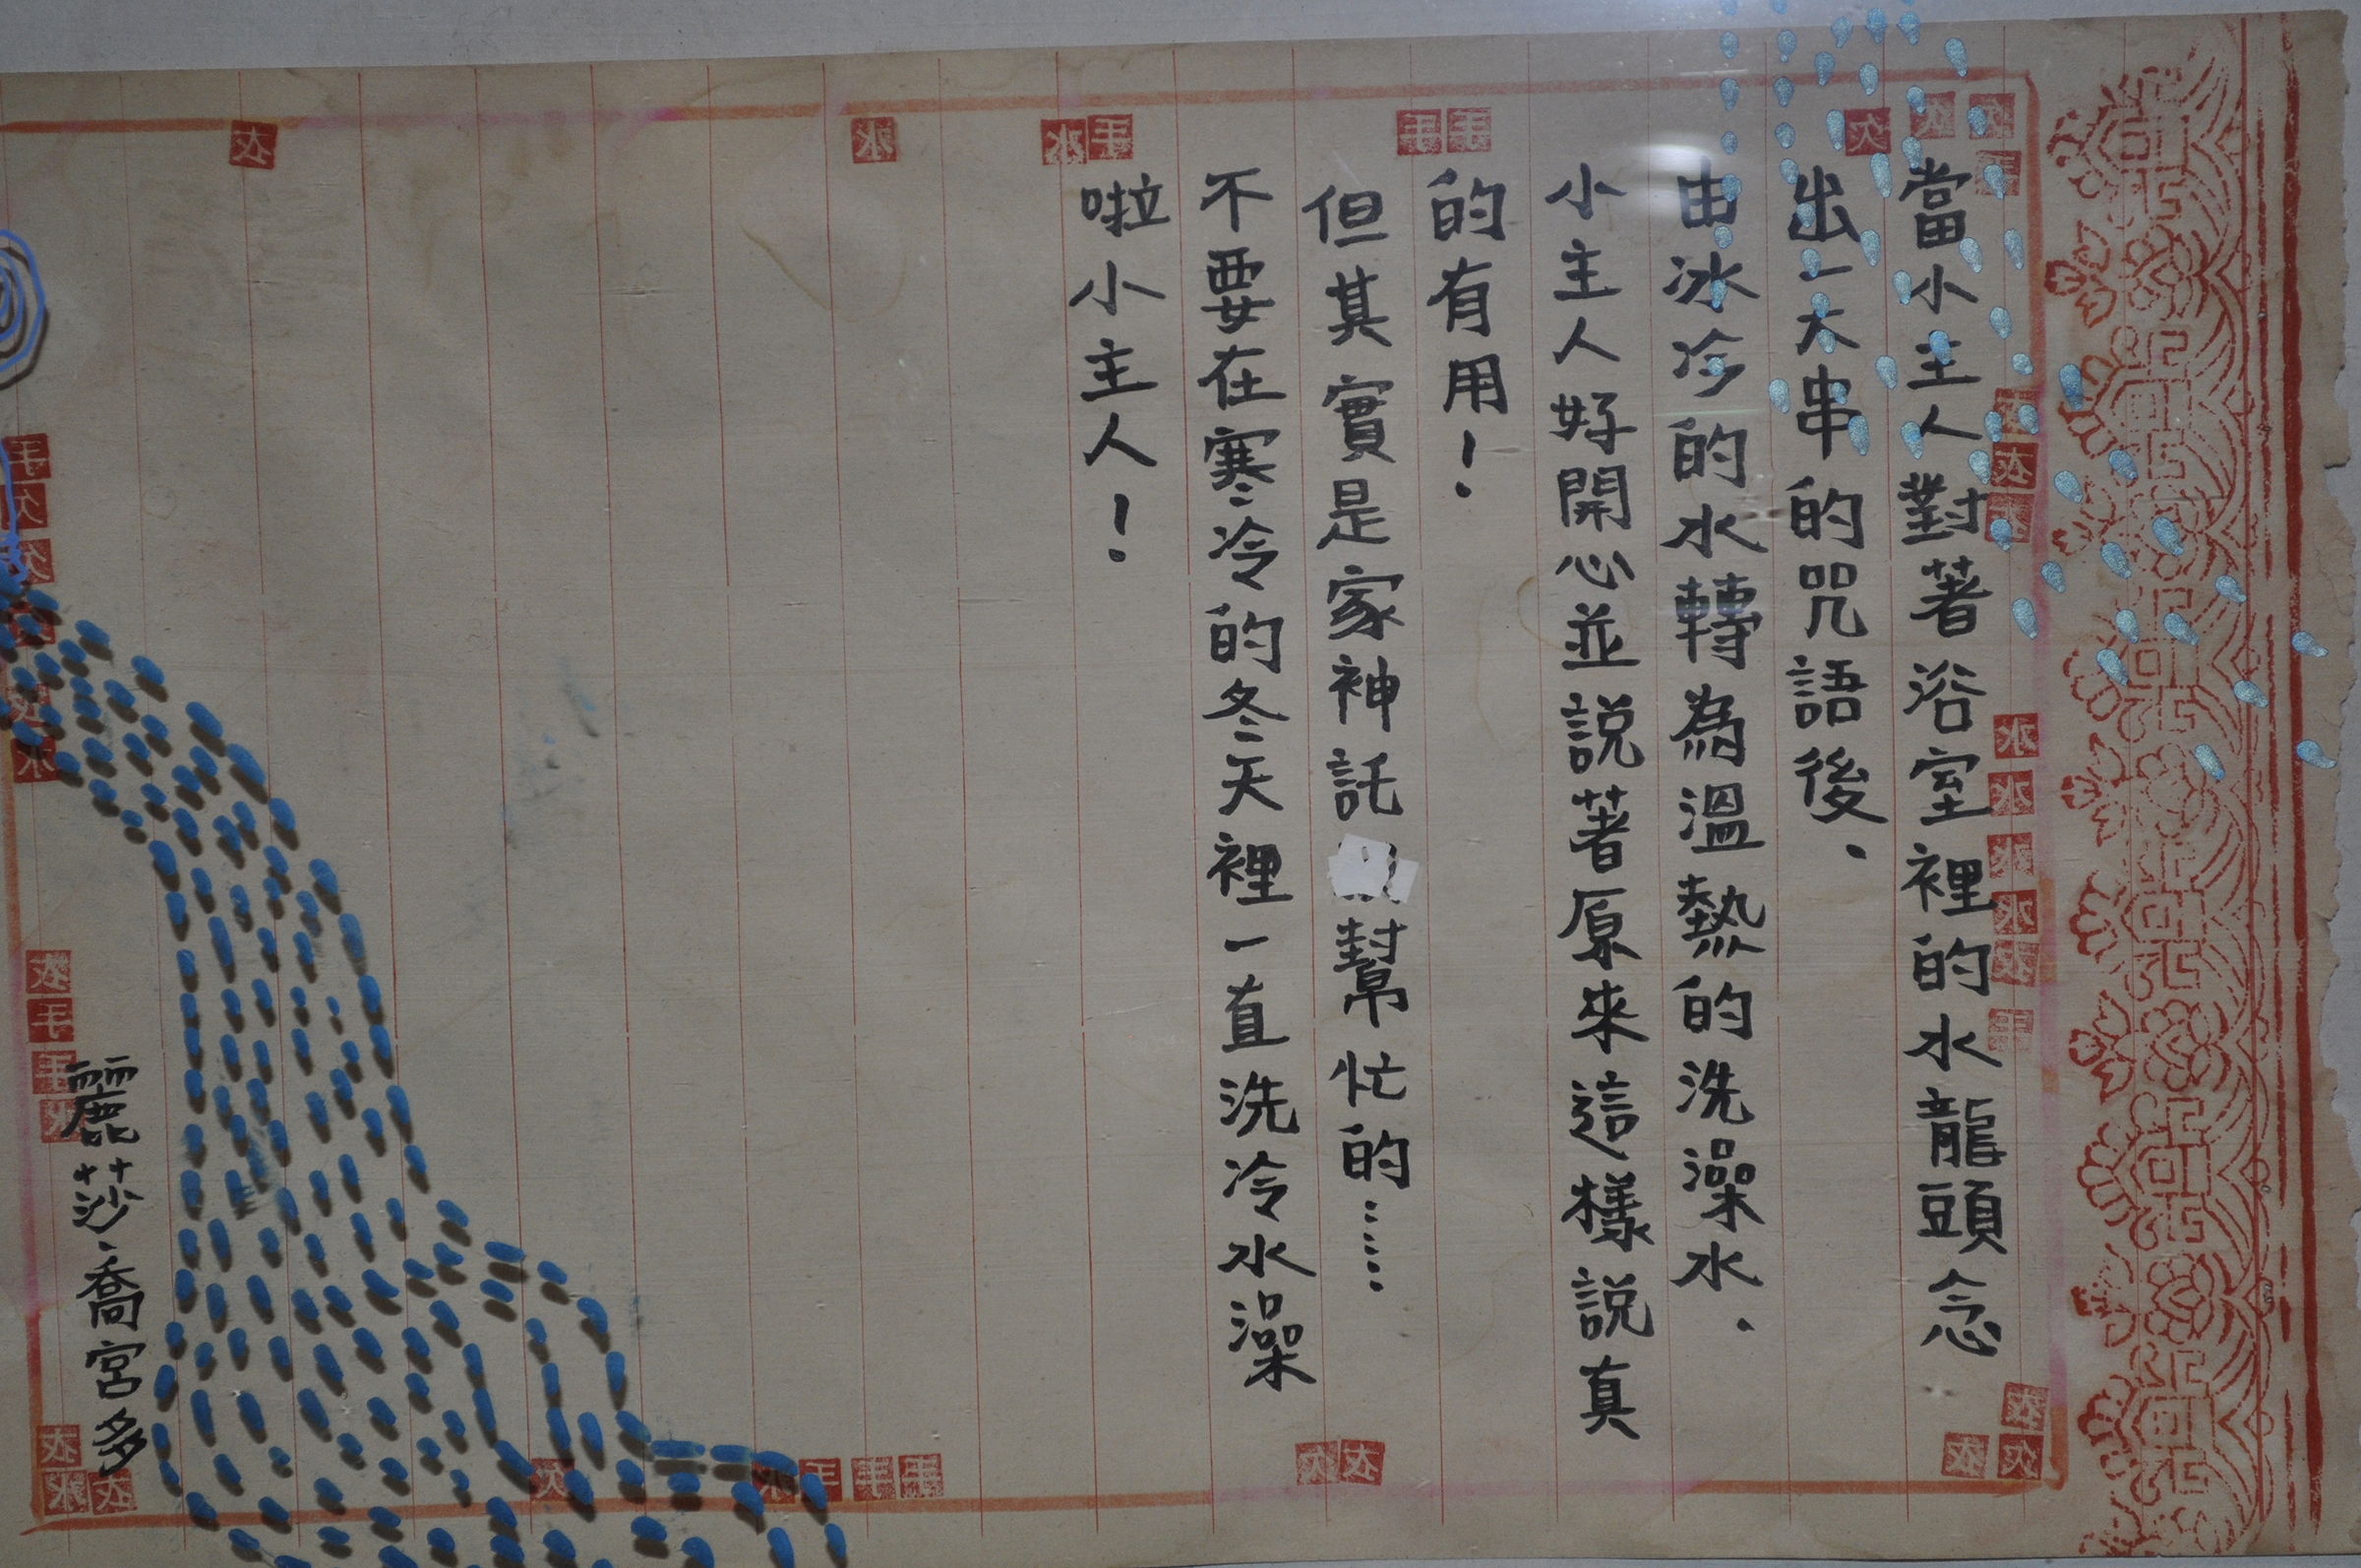 當小主人對著浴室裡的水龍頭念
出一大串的咒語後、
由冰冷的水轉為溫熱的洗澡水、
小主人好開心並説著原來這樣説真
的有用！
但其實是家神託幫忙的……
不要在寒冷的冬天裡一直洗冷水澡
啦小主人！
麗莎、喬宮多